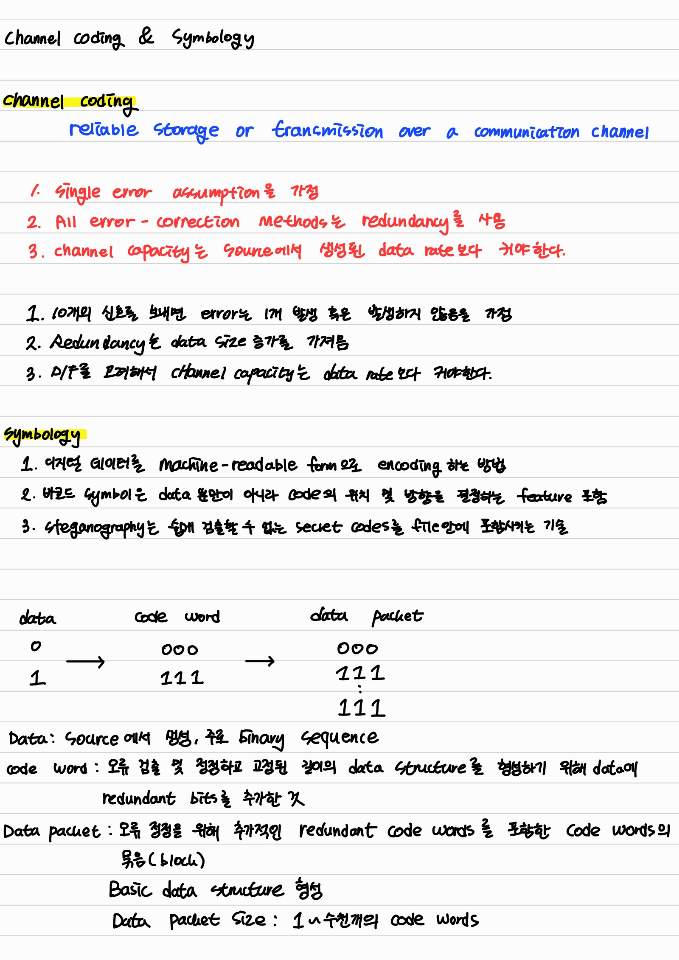 Channel coding & Symbology
Channel coding
reliable storage or transmission over a communication channel
1. Single error assumption을 가정
2. All error-correction methods는 redundancy를 사용
3. channel capacity는 source에서 생성된 data rate보다 커야한다.
1. 10개의 신호를 보내면 error는 1개 발생 혹은 발생하지 않음을 가정
2. Redundancy는 data size 증가를 가져옴
3. D/F를 고려해서 channel capacity는 data rate보다 커야한다.
Symbology
1. 디지털 데이터를 machine-readable form으로 encoding 하는 방법
2. 바코드 symbol은 data 뿐만이 아니라 code의 위치 및 방향을 결정하는 feature 포함
3. steganography는 쉽게 검출할 수 없는 secret codes를 file안에 포함시키는 기술
data code word data packet
0 000 000
1 → 111 → 111
⋮
111
Data: source에서 생성, 주로 binary sequence
code word: 오류 검출 및 정정하고 고정된 길이의 data structure를 형성하기 위해 data에
redundant bits를 추가한 것
Data packet: 오류 정정을 위해 추가적인 redundant code words를 포함한 code words의
묶음(block)
Basic data structure 형성
Data packet size: 1~수천개의 code words